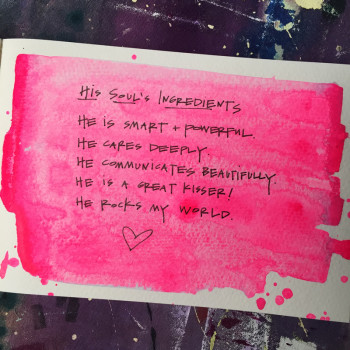 His Soul's Ingredients
He is smart + powerful.
He cares deeply.
He communicates beautifully.
He is a great kisser!
He rocks my world.